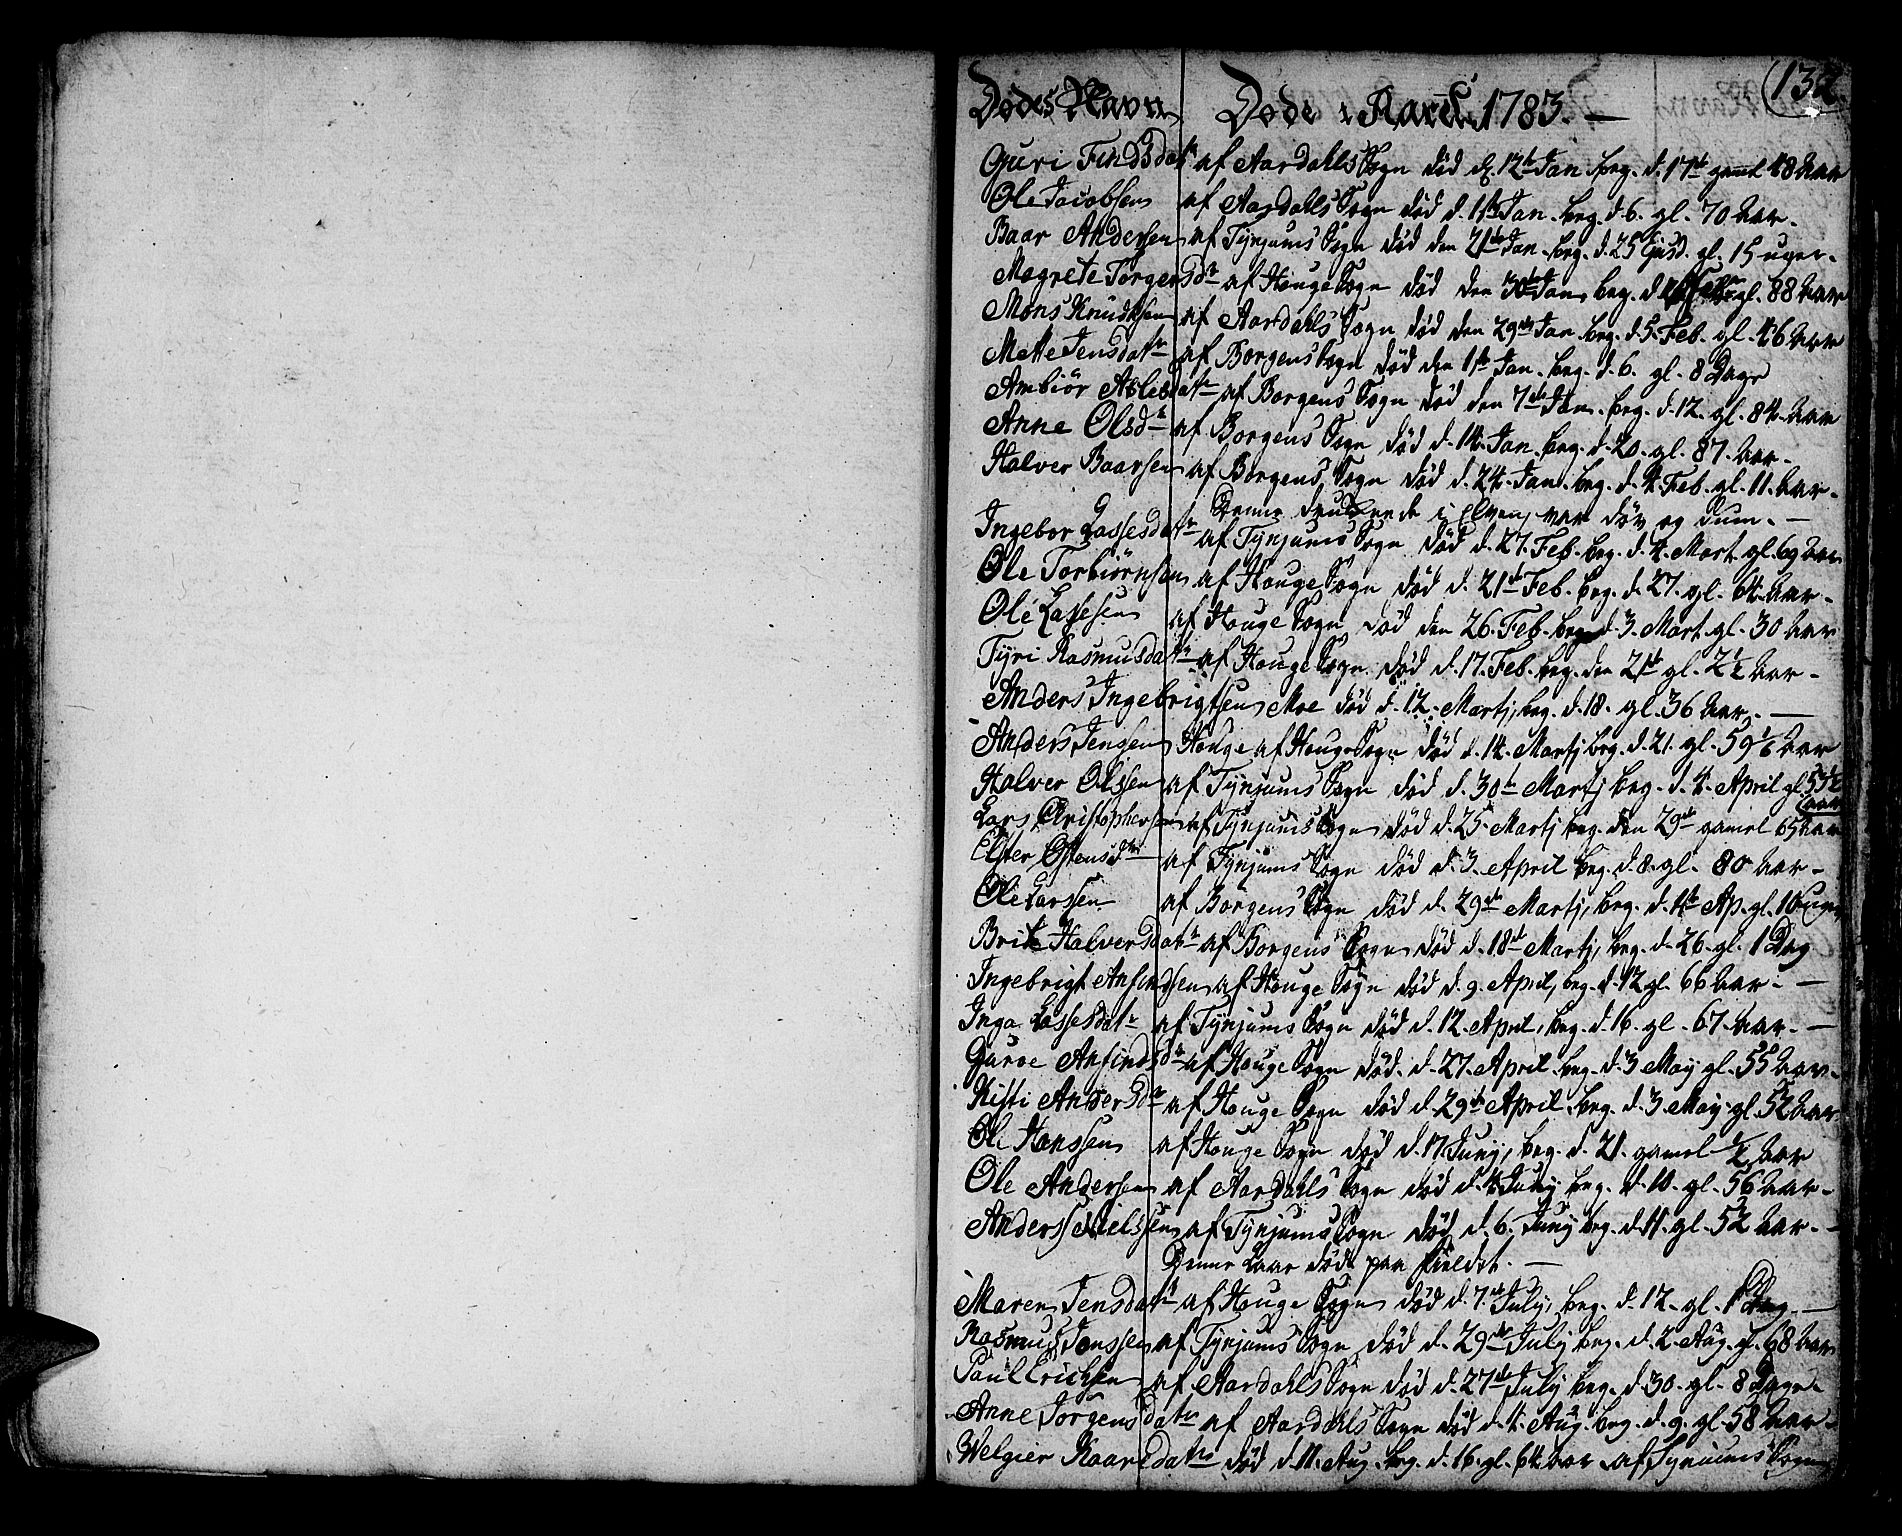 132.
Dødes Navn Døde i Aaret 1783. —
Guri Findsdatr af Aardahls Sogn død d. 12te Jan. beg. d. 17de gamel 48 Aar
Ole Jacobsen af Aardahls Sogn død d. 1ste Jan. beg. d. 6. gl. 70 Aar.
Baar Andersen af Tynjums Sogn død den 21de Jan. beg. d. 25 gl. 15 uger.
Magrete Torgersdr af Houge Sogn død den 30te Jan. beg. d. gl. 88 Aar
Mons Knudsen af Aardahls Sogn død den 29de Jan beg. d. 5. Feb. gl. 46 Aar
Mette Jensdatr af Borgens Sogn død den 1ste Jan. beg. d. 6. gl. 8 Dage
Ambiør Aslebdatr af Borgens Sogn død den 7de Jan. beg. d. 12. gl. 84. Aar
Anne Olsdr af Borgens Sogn død d. 14. Jan. beg. d. 20. gl. 87. Aar.
Halver Baarsen af Borgens Sogn død d. 24. Jan. beg. d. 4. Feb. gl. 11. Aar.
Denne druknede i Elven, var døv og dum. —
Ingebor Lassesdatr af Tynjums Sogn død d. 27. Feb. beg. d. 4. Mart. gl. 69 Aar
Ole Torbiørnsen af Houge Sogn død d. 21de Feb. beg. d. 27. gl. 64. Aar.
Ole Lassesen af Houge Sogn død den 26. Feb. beg. d. 3. Mart. gl. 30 Aar
Tyri Rasmusdatr af Houge Sogn død d. 17. Feb. beg. den 21de gl. 2½ Aar.
Anders Ingebrigtsen Moe død d. 12. Martj, beg. d. 18. gl. 36 Aar. —
Anders Jensen Houge af Houge Sogn død d. 14. Martj beg. d. 21. gl. 59 Aar
Halver Olssen af Tynjums Sogn død d. 30te Martj beg. d. 4. April gl. 53½ Aar
Lars Christophersen af Tynjums Sogn død d. 25. Martj beg. den 29de gamel 65 Aar
Elster Ostensdr af Tynjums Sogn død d. 3. April beg. d. 8. gl. 80 Aar.
Ole Larssen af Borgens Sogn død d. 29de Martj, beg. d. 4de Ap. gl. 10 uger
Brite Halversdatr af Borgens Sogn død d. 18de Martj, beg. d. 26. gl. 1 Dag
Ingebrigt Anfindsen af Houge Sogn død d. 9. April, beg. d. 12 gl. 66 Aar. —
Inga Lassesdatr af Tynjums Sogn død d. 12. April, beg. d. 16. gl. 67. Aar. —
Gurve Anfindsdr af Houge Sogn død. d. 27. April beg. d. 3 May gl. 55 Aar.
Kisti Andersdr af Houge Sogn død d. 29de April. beg. d. 3. May. gl. 52 Aar
Ole Hanssen af Houge Sogn død d. 17 Juny, beg. d. 21. gamel ½ Aar
Ole Andersen af Aardahls Sogn død d. 4. Juny beg. d. 10. gl. 56 Aar.
Anders Nielssen af Tynjums Sogn død d. 6. Juny beg. d. 11. gl. 52 Aar. —
Denne Laae død paa Fieldet. —
Maren Jensdatr af Houge Sogn død d. 7de July, beg. d. 12. gl. 1 Dag. —
Rasmus Jenssen af Tynjums Sogn død d. 29de July beg. d. 2. Aug. gl. 68 Aar
Paul Erichsen af Aardahls Sogn død d. 27de July beg. d. 30. gl. 8 Dage.
Anne Jørgensdatr af Aardahls Sogn død d. 4. Aug. beg. d. 9. gl. 58 Aar.
Welgier Kaarlsdatr død d. 11. Aug. beg. d. 16. gl. 64. Aar af Tynjums Sogn